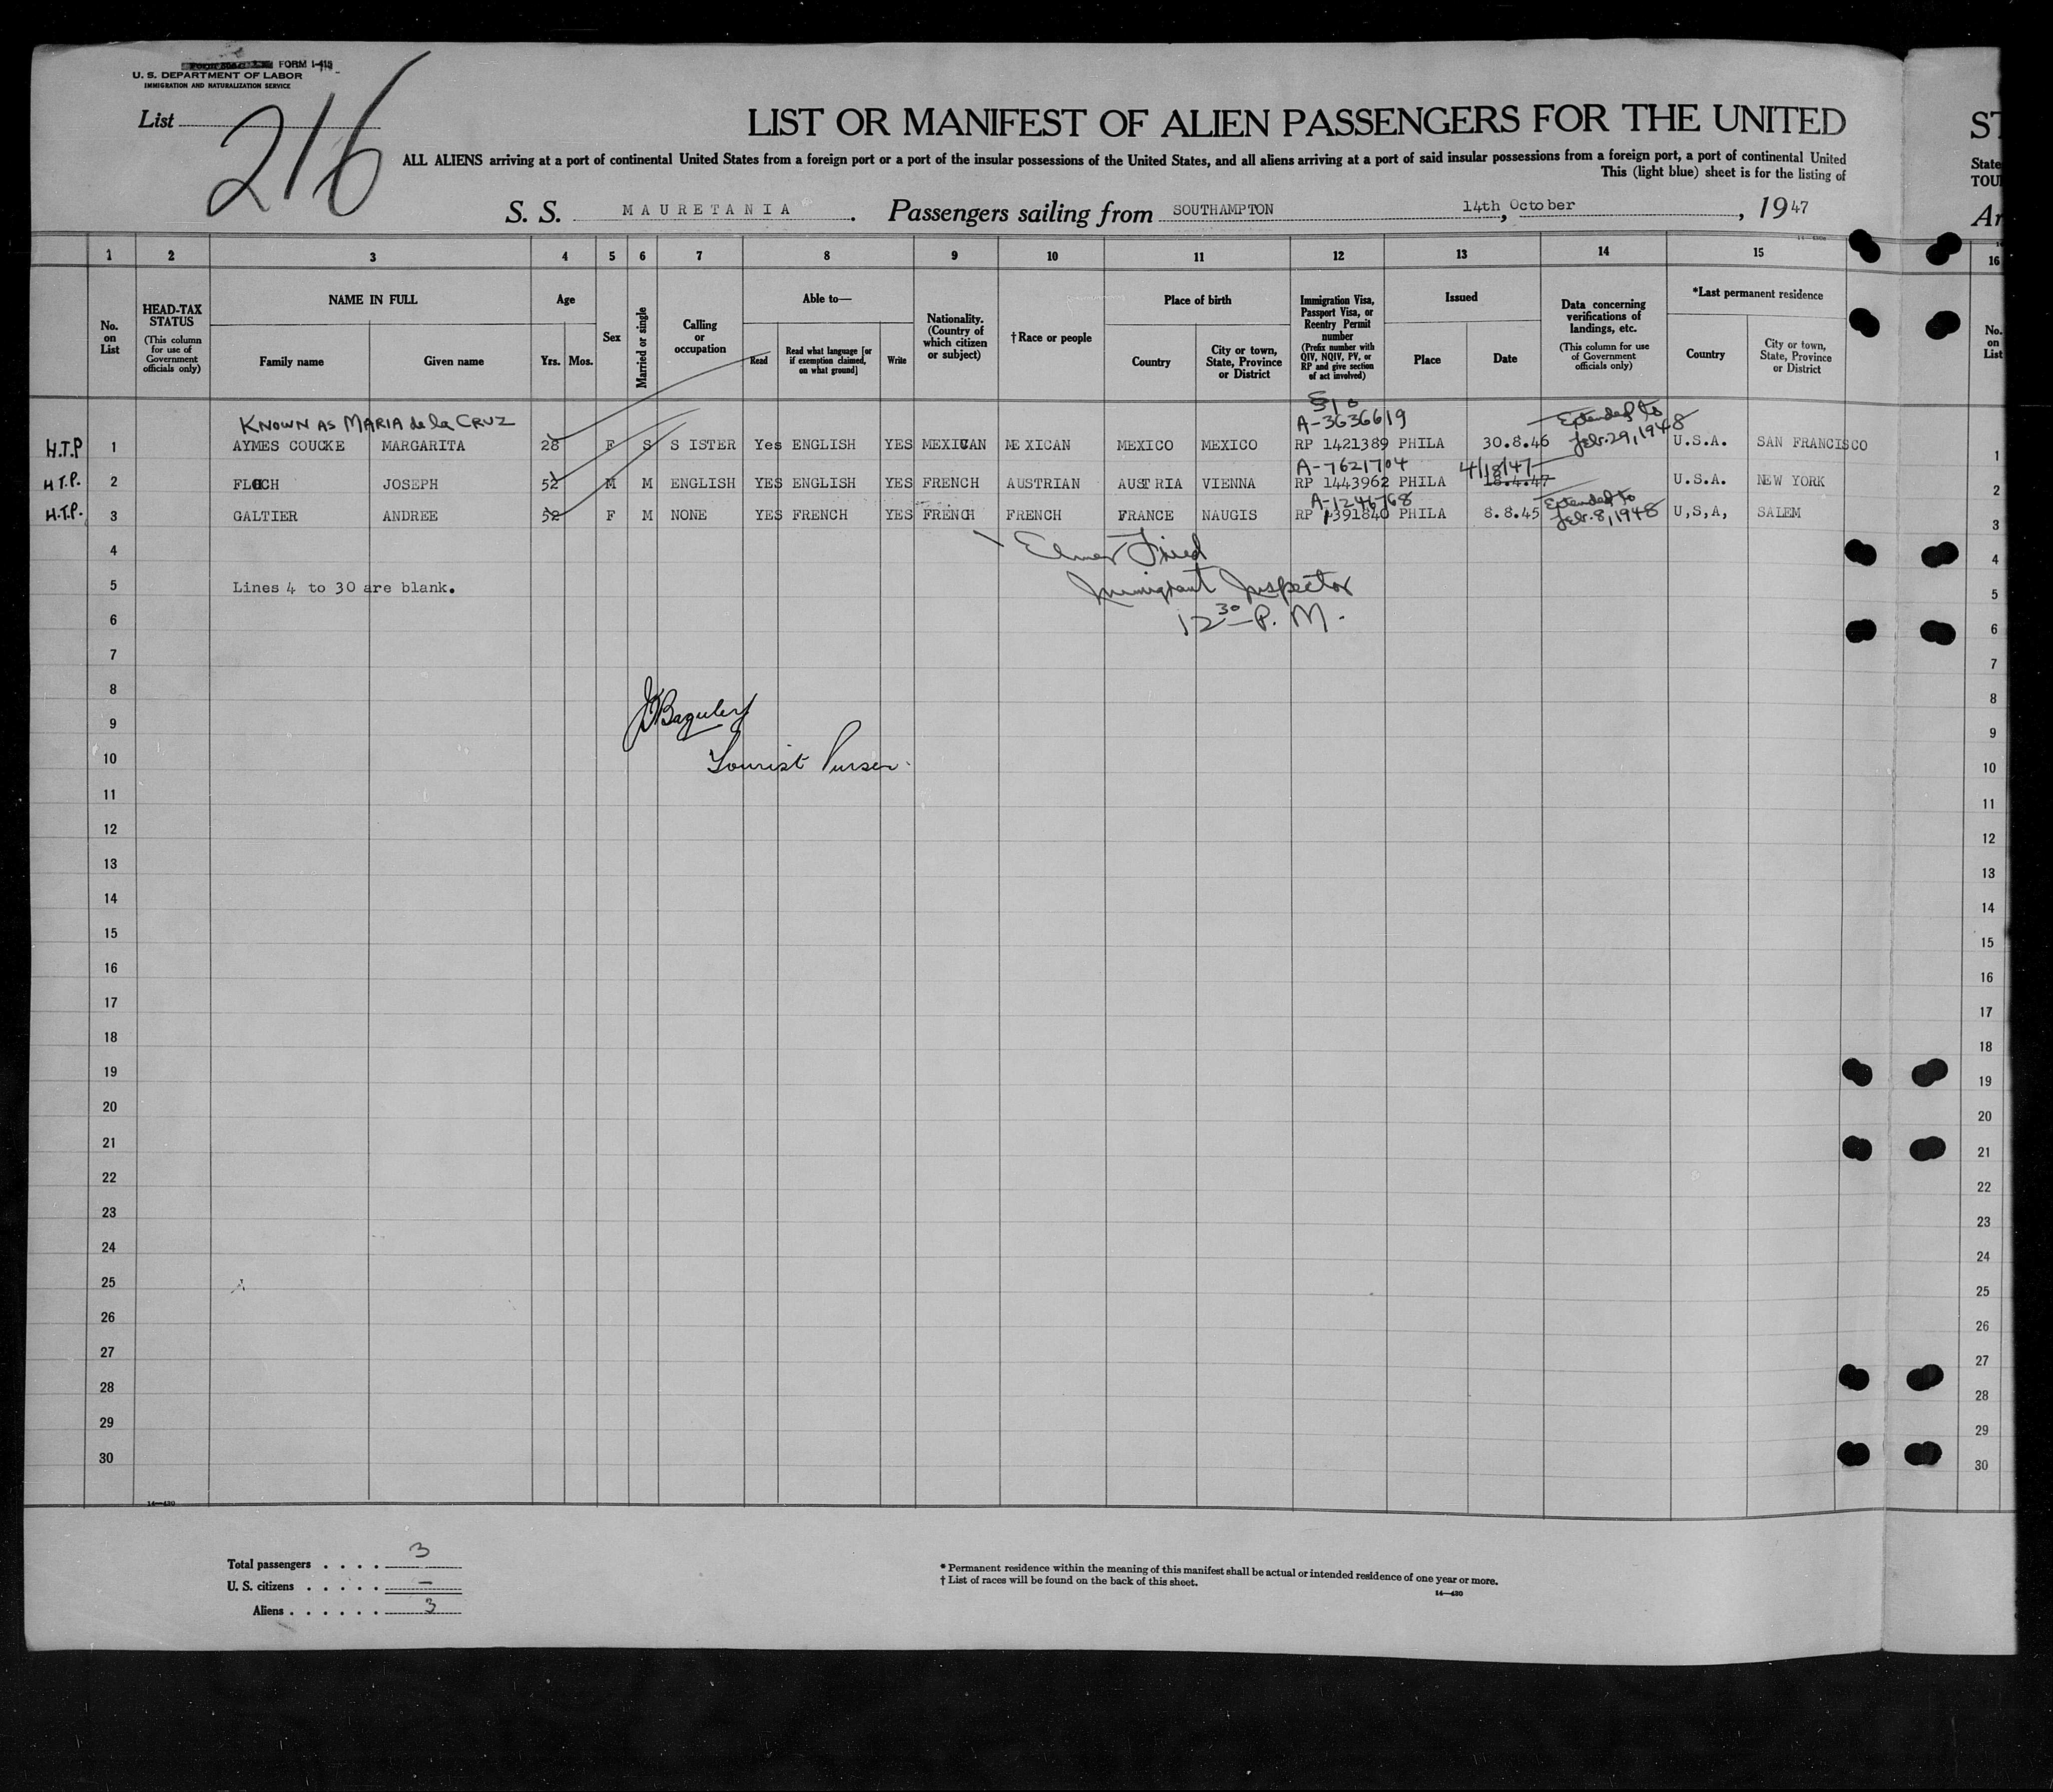 FORM I-415
U. S. DEPARTMENT OF LABOR
IMMIGRATION AND NATURALIZATION SERVICE
List 216
LIST OR MANIFEST OF ALIEN PASSENGERS FOR THE UNITED ST
ALL ALIENS arriving at a port of continental United States from a foreign port or a port of the insular possessions of the United States, and all aliens arriving at a port of said insular possessions from a foreign port, a port of continental United State
This (light blue) sheet is for the listing of TOU
S. S. MAURETANIA. Passengers sailing from SOUTHAMPTON 14th, October, 1947 Ar
1 2 3 4 5 6 7 8 9 10 11 12 13 14 15 16
No. on List
HEAD-TAX STATUS
(This column for use of Government officials only)
NAME IN FULL
Family name Given name
Age
Yrs. Mos.
Sex
Married or single
Calling or occupation
Able to—
Read
Read what language [or if exemption claimed, on what ground]
Write
Nationality. (Country of which citizen or subject)
†Race or people
Place of birth
Country
City or town, State, Province or District
Immigration Visa, Passport Visa, or Reentry Permit number
(Prefix number with QIV, NQIV, PV, or RP and give section of act involved)
Issued
Place Date
Data concerning verifications of landings, etc.
(This column for use of Government officials only)
*Last permanent residence
Country
City or town, State, Province or District
No. on List
KNOWN AS MARIA de la CRUZ A-3636619 Extended to Feb. 29, 1948
H.T.P 1 AYMES COUCKE MARGARITA 28 F S SISTER Yes ENGLISH YES MEXICAN MEXICAN MEXICO MEXICO RP 1421389 PHILA 30.8.46 U.S.A. SAN FRANCISCO 1
A-7621704 4/18/47
H.T.P. 2 FLOCH JOSEPH 52 M M ENGLISH YES ENGLISH YES FRENCH AUSTRIAN AUSTRIA VIENNA RP 1443962 PHILA 18.4.47 U.S.A. NEW YORK 2
A-1246768 Extended to Feb. 8, 1948
H.T.P. 3 GALTIER ANDREE 52 F M NONE YES FRENCH YES FRENCH FRENCH FRANCE NAUGIS RP 1391840 PHILA 8.8.45 U,S,A, SALEM 3
4 Elmer Fried 4
5 Lines 4 to 30 are blank. Immigrant Inspector 5
6 12 30 P. M. 6
7 7
8 8
9 Baguley 9
10 Tourist Purser. 10
11 11
12 12
13 13
14 14
15 15
16 16
17 17
18 18
19 19
20 20
21 21
22 22
23 23
24 24
25 25
26 26
27 27
28 28
29 29
30 30
14—430
Total passengers . . . . 3
U. S. citizens . . . . . –
Aliens . . . . . . 3
* Permanent residence within the meaning of this manifest shall be actual or intended residence of one year or more.
† List of races will be found on the back of this sheet.
14—430